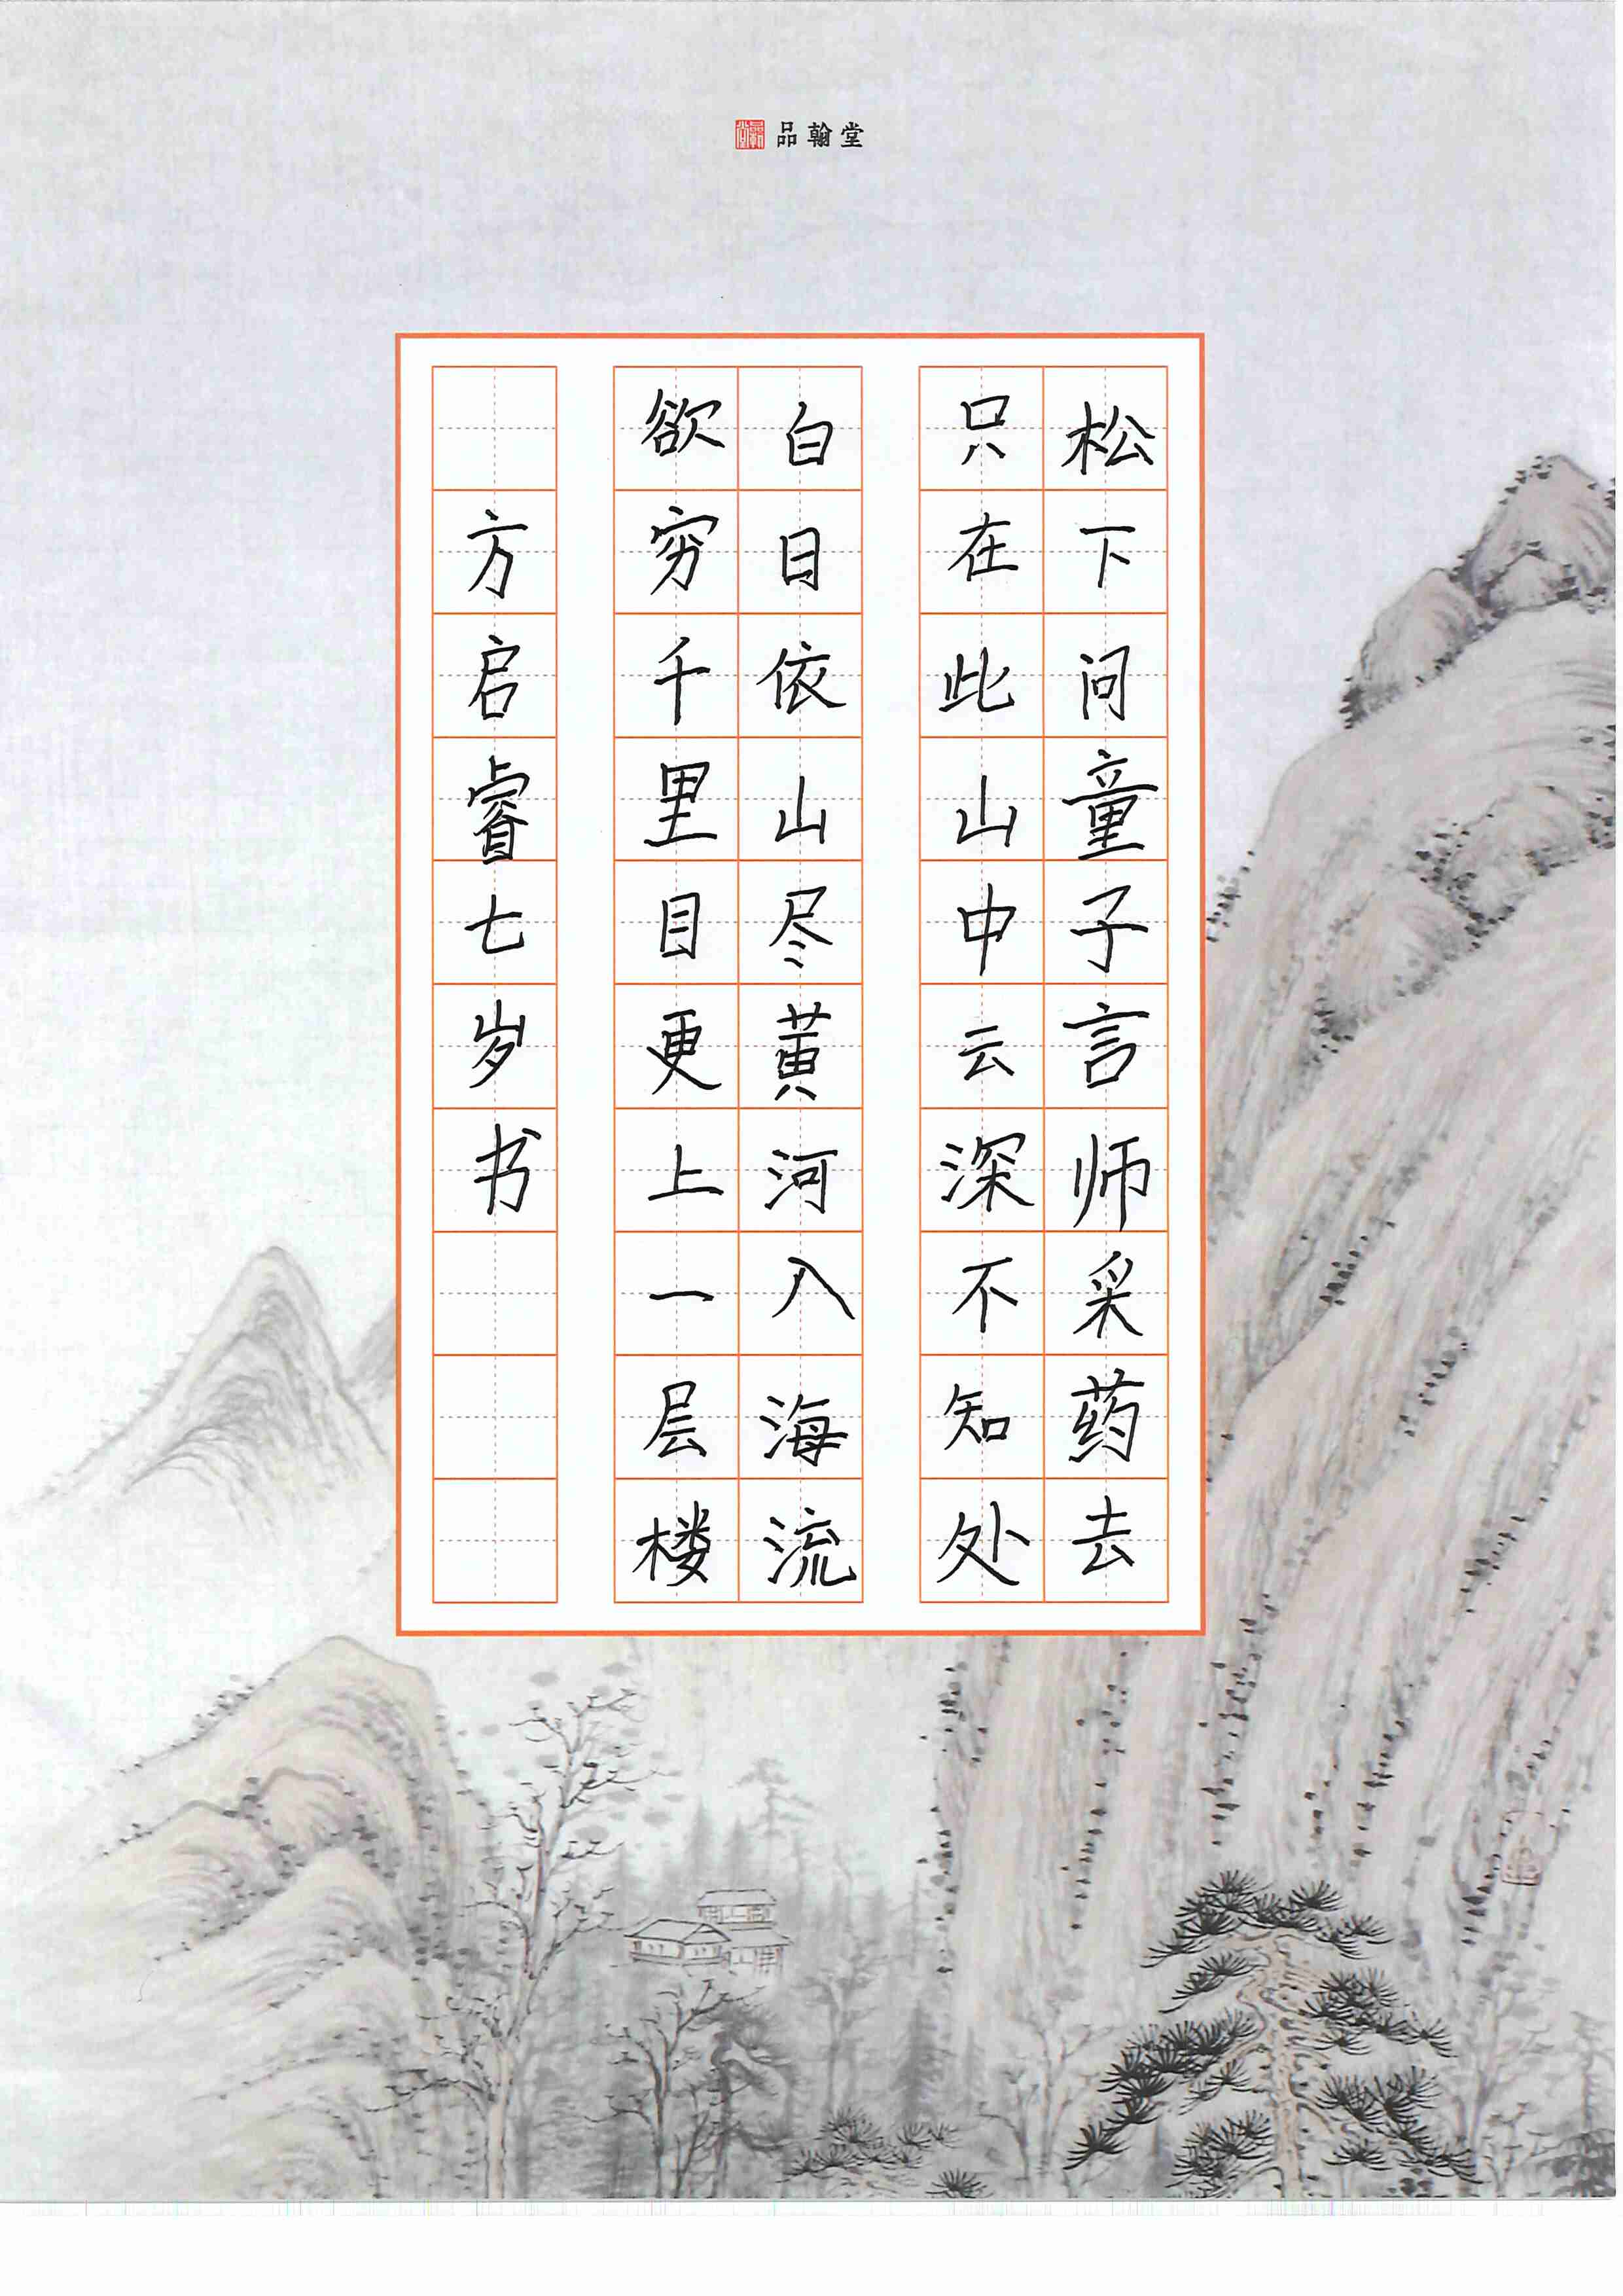 品翰堂
松下问童子言师采药去
只在此山中云深不知处
白日依山尽黄河入海流
欲穷千里目更上一层楼
方启睿七岁书